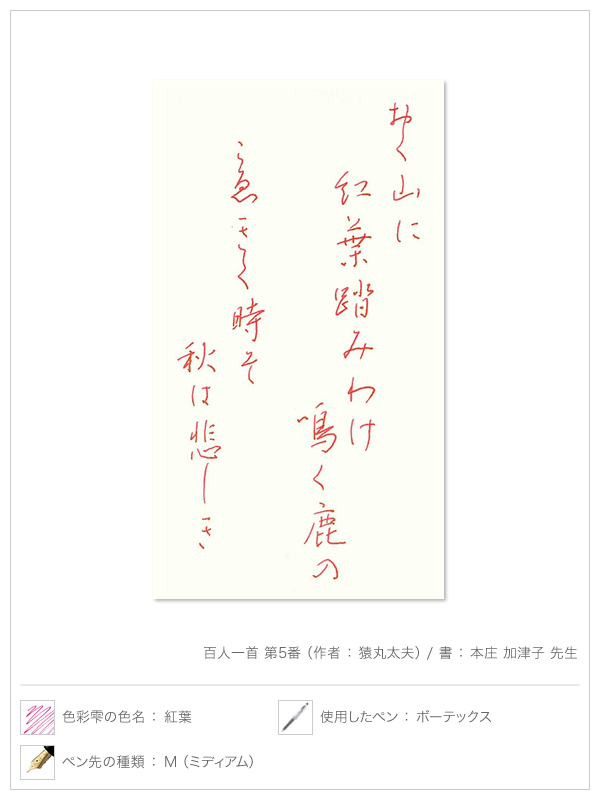 おく山に
紅葉踏みわけ
鳴く鹿の
こゑきく時そ
秋は悲しき
百人一首 第5番 (作者 : 猿丸太夫) / 書 : 本庄 加津子 先生
色彩雫の色名 : 紅葉
使用したペン : ボーテックス
ペン先の種類 : M (ミディアム)